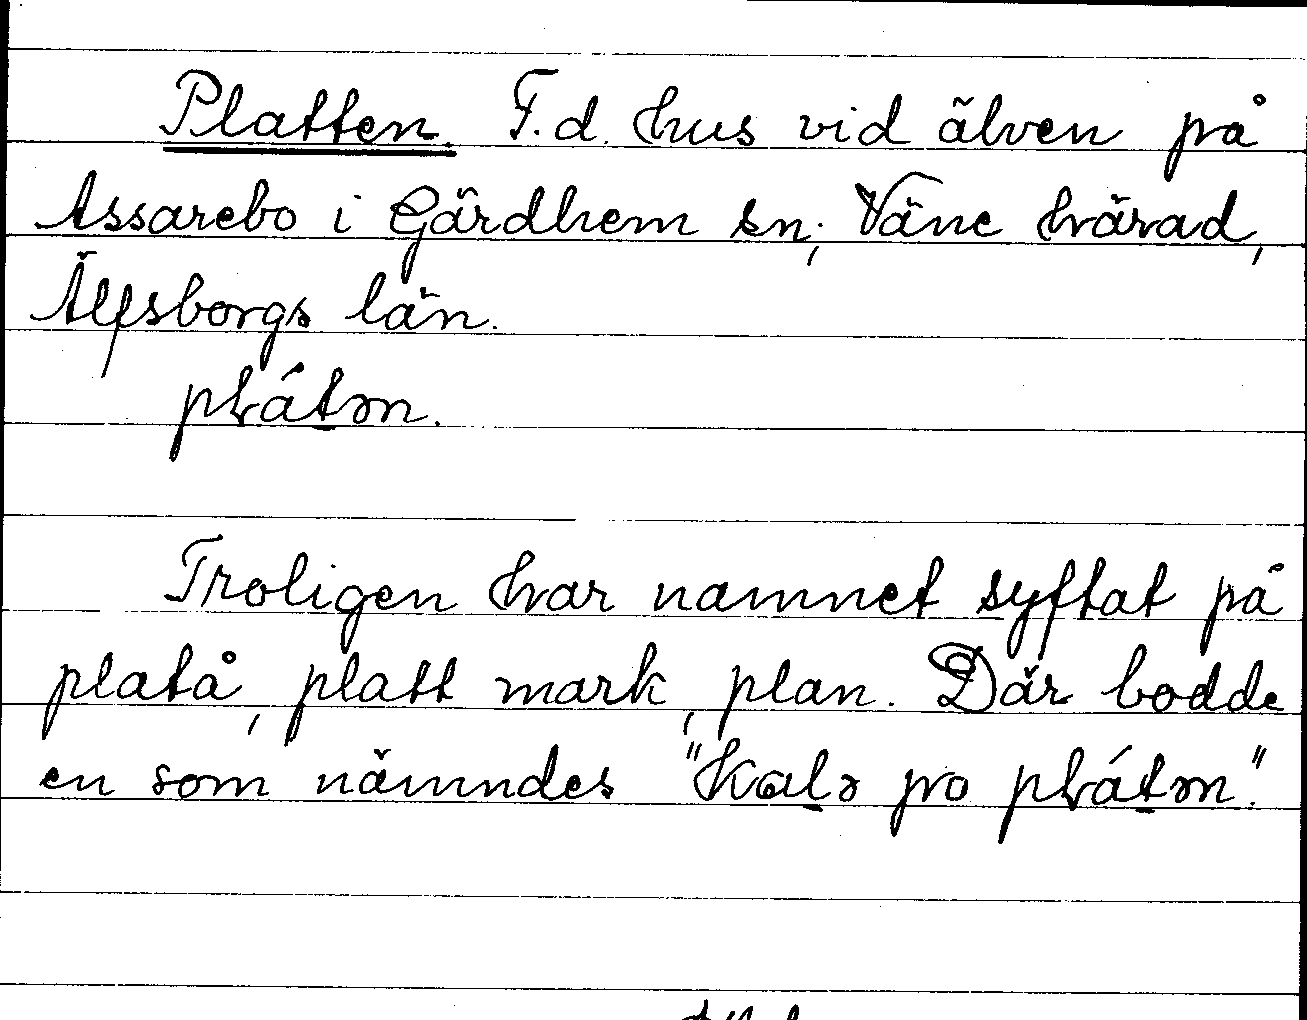 Platten. F.d. hus vid älven på
Assarebo i Gärdhem sn, Väne härad,
Älfsborgs län.
plát̲ən.
Troligen har namnet syftat på
platå, platt mark, plan. Där bodde
en som nämndes "Kal̲ə po plát̲ən".